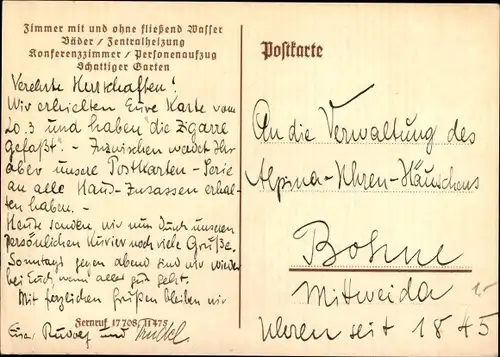 Zimmer mit und ohne fließend Wasser
Bäder / Zentralheizung
Konferenzzimmer / Personenaufzug
Schattiger Garten
Verehrte Herrschaften!
Wir erhielten Eure Karte vom
20.3 und haben "die Zigarre
gefaßt". - Inzwischen werdet Ihr
aber unsere Postkarten-Serie
an alle Haus-Insassen erhal-
ten haben. -
Heute senden wir nun durch unseren
persönlichen Kurier noch viele Grüße.
Sonntags gegen abend sind wir wieder
bei Euch, wenn alles gut geht.
Mit herzlichen Grüßen bleiben wir
Fernruf 17708, 11475
Eure Rudolf und
Postkarte
An die Verwaltung des
Alpina-Uhren-Häuschens
Bohne
Mittweida
Uhren seit 1845